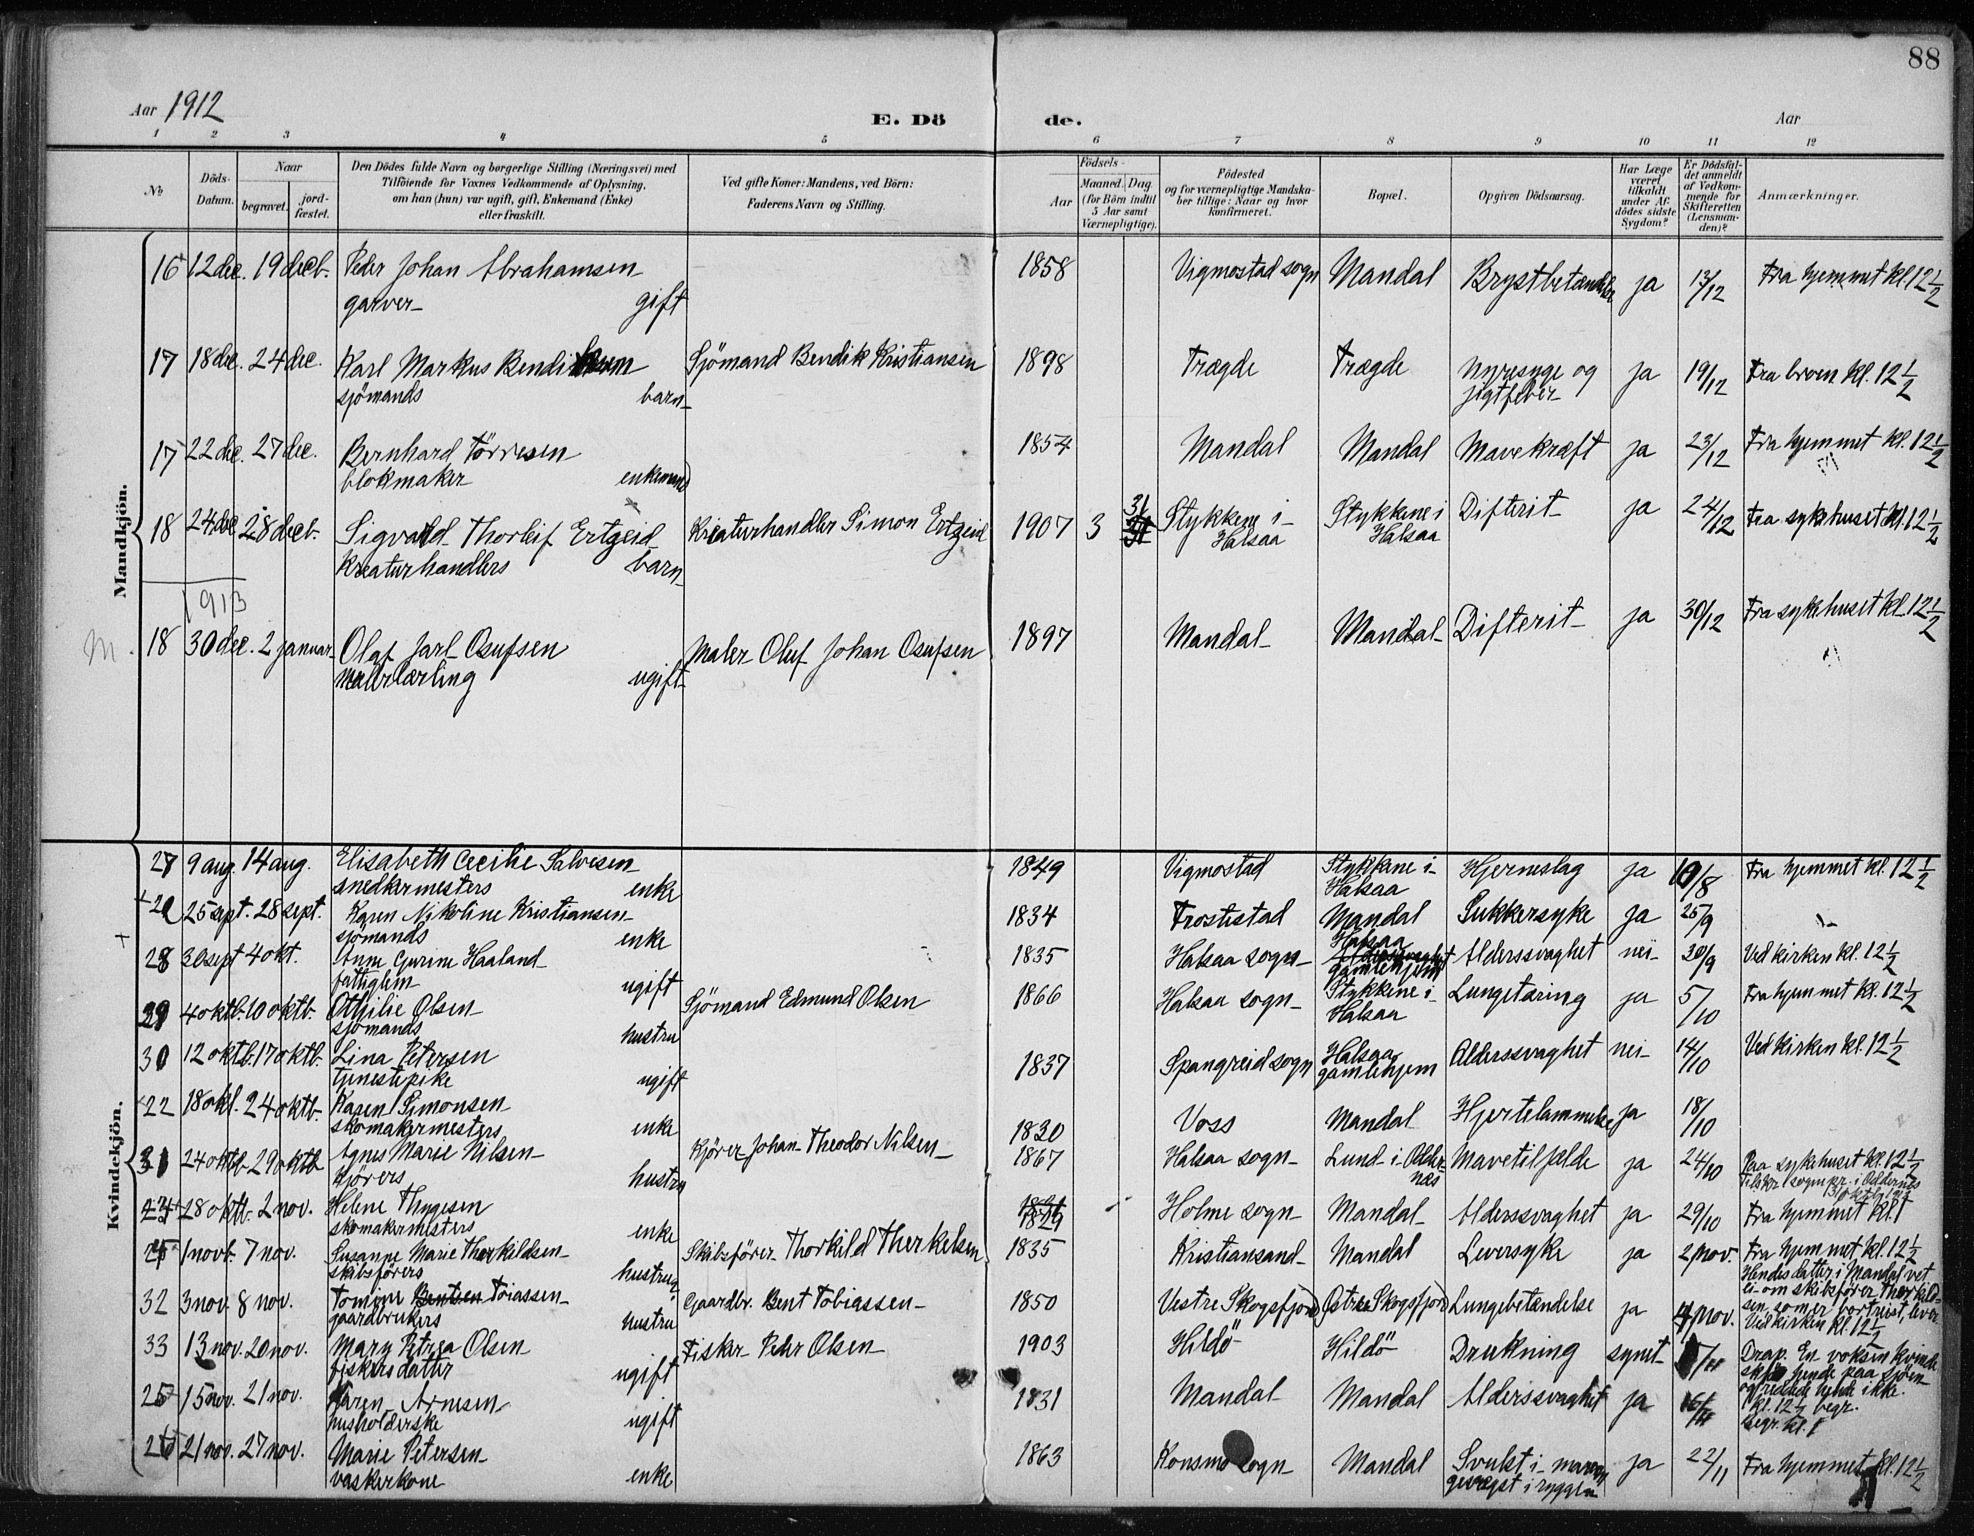 88
Aar 1912
E. Dö de.
Aar
1 2 3 4 5 6 7 8 9 10 11 12
No
Döds-Datum.
Naar
begravet.
jord-fæstet.
Den Dödes fulde Navn og borgerlige Stilling (Næringsvei) med
Tilföiende for Voxnes Vedkommende af Oplysning,
om han (hun) var ugift, gift, Enkemand (Enke)
eller fraskilt.
Ved gifte Koner: Mandens, ved Börn:
Faderens Navn og Stilling.
Födsels-
Aar
Maaned. Dag
(for Börn indtil
5 Aar samt
Værnepligtige).
Födested
og for værnepligtige Mandska-
ber tillige: Naar og hvor
konfirmeret.
Bopæl.
Opgiven Dödsaarsag.
Har Læge
været
tilkaldt
under Af-
dödes sidste
Sygdom?
Er Dödsfal-
det anmeldt
af Vedkom-
mende for
Skifteretten
(Lensman-
den)?
Anmærkninger.
Mandkjön.
16 12 dec. 19 decb. Peder Johan Abrahamsen 1858 Vigmostad sogn Mandal ja 13/12 Fra hjemmet kl. 12 1/2
garver gift
17 18 dec. 24 dec. Karl Markus Sjömand Bendik Kristiansen 1898 Trægde Trægde Nyresyge og ja 19/12 Fra broen kl. 12 1/2
sjömands barn jigtfeber
17 22 dec. 27 dec. Bernhard Törresen 1854 Mandal Mandal Mavekræft ja 23/12 Fra hjemmet kl. 12 1/2
blokmaker enkemand
18 24 dec 28 decb. Sigvald Thorleif Ertzeid Kreaturhandler Simon Ertzeid 1907 3 31 Stykkene i Stykkene i Difterit ja 24/12 Fra sykehuset kl. 12 1/2
Kreaturhandlers barn Halsaa Halsaa
1913
M. 18 30 dec. 2 januar Olaf Jarl Osufsen Maler Oluf Johan Osufsen 1897 Mandal Mandal Difterit ja 30/12 Fra sykehuset kl. 12 1/2
malerlærling ugift
Kvindekjön.
27 9 aug. 14 aug. Elisabeth Cecilie Salvesen 1849 Vigmostad Stykkene i Hjerneslag ja 10/8 Fra hjemmet kl. 12 1/2
snedkermesters enke Halsaa
25 sept. 28 sept. Karen Nikoline Kristiansen 1834 Mandal Sukkersyke ja 25/9
sjömands enke
28 30 sept 4 okt. Haaland 1835 Halsaa sogn Halsaa gamlehjem Alderssvaghet nei 30/9 Ved kirken kl. 12 1/2
fattiglem ugift
29 4 oktb. 10 oktb. Othilie Olsen Sjömand Edmund Olsen 1866 Halsaa sogn Stykkene i Lungetæring ja 5/10 Fra hjemmet kl. 12 1/2
sjömands hustru Halsaa
30 12 oktb. 17 oktb. Lina Petersen 1837 Spangreid sogn Halsaa Alderssvaghet nei 14/10 Ved kirken kl. 12 1/2
tjenestepike ugift gamlehjem
22 18 okt. 24 oktb. Karen Simonsen 1830 Voss Mandal Hjertelammelse ja 18/10
skomakermesters enke
31 24 oktb. 29 oktb Agnes Marie Nilsen Kjörer Johan Theodor Nilsen 1867 Halsaa sogn Lund i Oldernæs Mavetilfælde ja 24/10 Paa sykehuset kl. 12 1/2
kjörers hustru
28 oktb. 2 nov. Helene Thygesen 1829 Holme sogn Mandal Alderssvaghet ja 29/10 Fra hjemmet kl. 1
skomakermesters enke
1 novb. 7 nov. Susanne Marie Therkildsen Skibsförer Thorkild Therkelsen 1835 Kristiansand Mandal Leversyke ja 2 nov. Fra hjemmet kl. 12 1/2
skibsförers hustru Hendes datter i Mandal vet
32 3 nov. 8 nov. Tomine Bentsen Toiassen Gaardbr. Bent Tobiassen 1850 Vestre Skogsfjord Östre Skogsfjord Lungebetændelse ja 4 nov. ei om skibsförer Therkild-
gaardbrukers hustru sen, som er bortreist, lever
Ved kirken kl. 12 1/2
33 13 nov. 20 nov. Mary Petrea Olsen Fisker Peder Olsen 1903 Hildö Hildö Drukning synet Drap. En voksen kvinde
fiskers datter ugift hende paa sjöen
og reddede hende ikke.
25 15 nov. 21 nov. Karen Arnesen 1831 Mandal Mandal Alderssvaghet ja 16/11 kl. 12 1/2 begr.
husholderske ugift begr. kl. 1
26 21 nov. 27 nov. Marie Petersen 1863 Konsmo sogn Mandal Svulst i maven ja 22/11 Fra hjemmet kl. 12 1/2
vaskerkone enke i ryggen